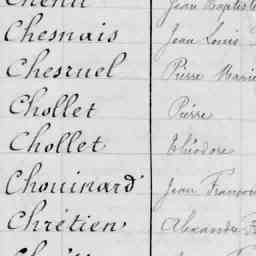 Jean Baptiste
Chesnais Jean Louis
Chesruel Pierre Marie
Chollet Pierre
Chollet Théodore
Chouinard Jean François
Chrétien Alexandre